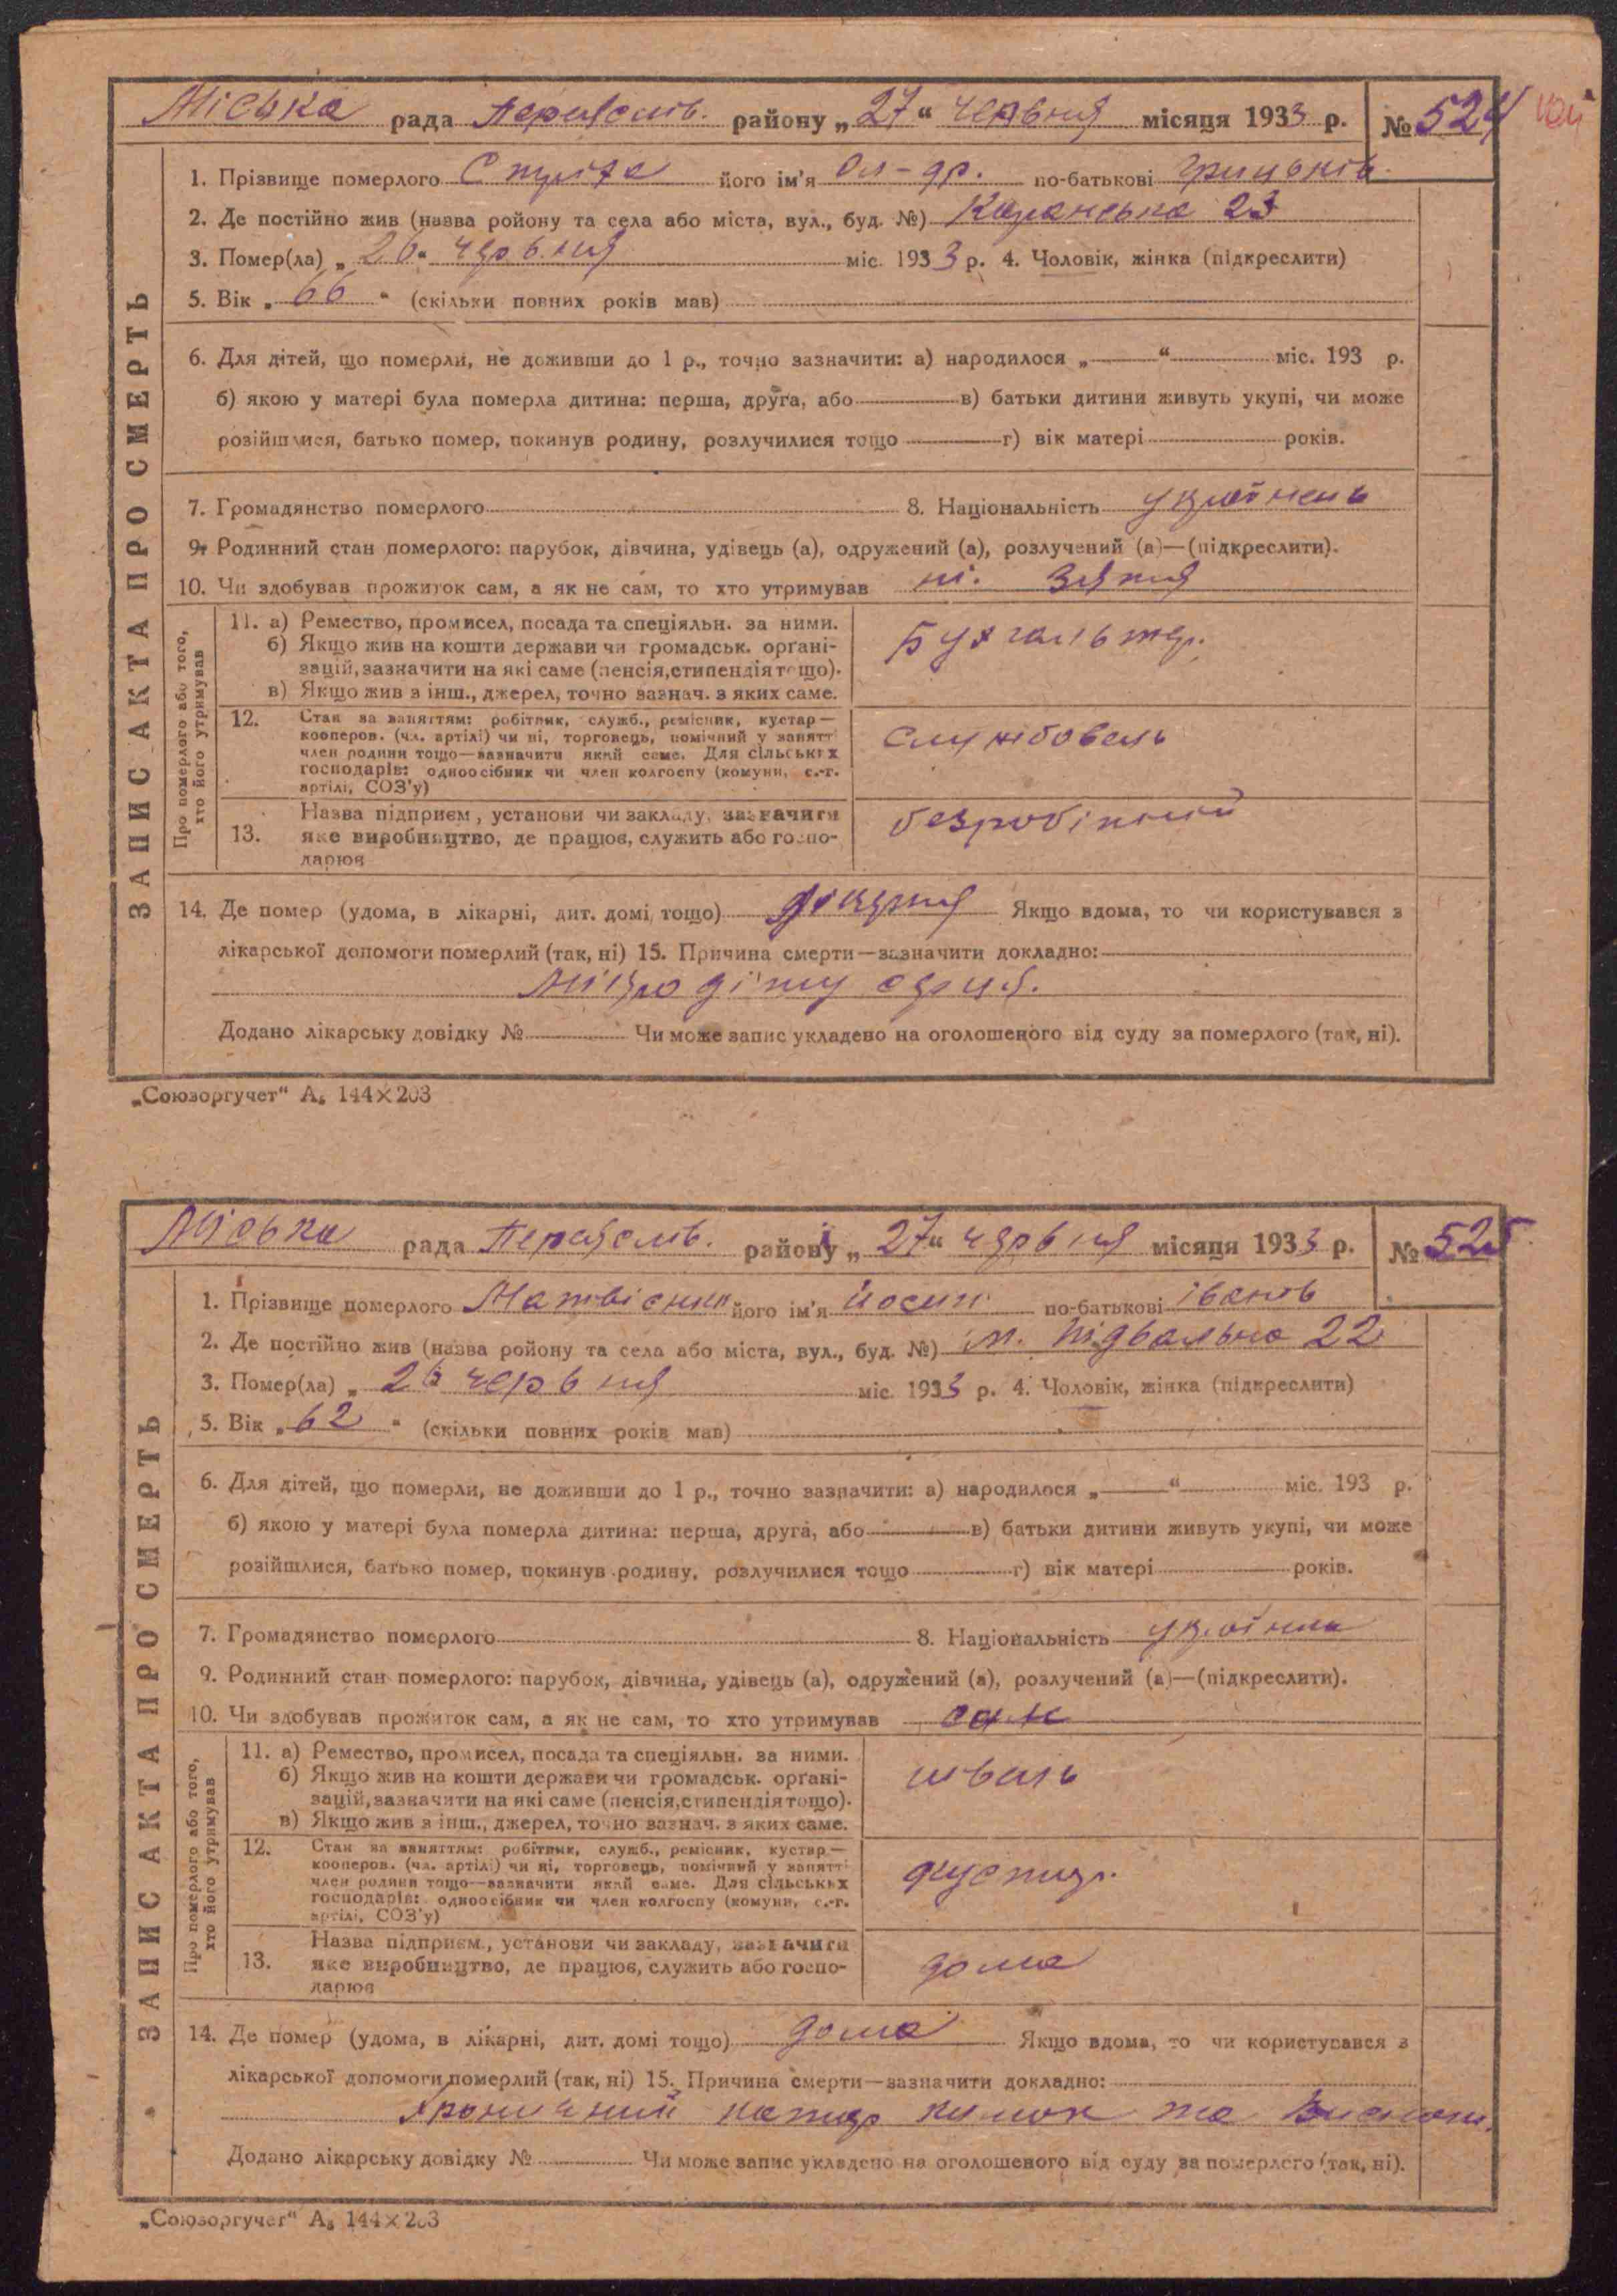 Міська рада Переяслів. району „27“ червня місяця 1933 р. № 524
ЗАПИС АКТА ПРО СМЕРТЬ
1. Прізвище померлого його ім'я Ол-др. по-батькові Грицьків.
2. Де постійно жив (назва ройону та села або міста, вул., буд. №) Каранська 23
3. Помер(ла) „26“ червня міс. 1933 р. 4. Чоловік, жінка (підкреслити)
5. Вік „66“ (скільки повних років мав)
6. Для дітей, що померли, не доживши до 1 р., точно зазначити: а) народилося „ “ міс. 193 р.
б) якою у матері була померла дитина: перша, друга, або в) батьки дитини живуть укупі, чи може
розійшлися, батько помер, покинув родину, розлучилися тощо г) вік матері років.
7. Громадянство померлого 8. Національність українець
9. Родинний стан померлого: парубок, дівчина, удівець (а), одружений (а), розлучений (а)—(підкреслити).
10. Чи здобував прожиток сам, а як не сам, то хто утримував ні. зятя
Про померлого або того, хто його утримував
11. а) Ремество, промисел, посада та спеціяльн. за ними.
б) Якщо жив на кошти держави чи громадськ. органі-
зацій, зазначити на які саме (пенсія, стипендія тощо).
в) Якщо жив з інш., джерел, точно зазнач. з яких саме.
Бухгальтер.
12. Стан за заняттям: робітник, служб., ремісник, кустар—
кооперов. (чл. артілі) чи ні, торговець, помічний у занятті
член родини тощо—зазначити який саме. Для сільських
господарів: одноосібник чи член колгоспу (комуни, с.-г.
артілі, СОЗ'у)
службовець
13. Назва підприєм., установи чи закладу, зазначити
яке виробництво, де працює, служить або госпо-
дарює
безробітний
14. Де помер (удома, в лікарні, дит. домі тощо) лікарня Якщо вдома, то чи користувався з
лікарської допомоги померлий (так, ні) 15. Причина смерти—зазначити докладно:
серця.
Додано лікарську довідку № Чи може запис укладено на оголошеного від суду за померлого (так, ні).
„Союзоргучет“ А₅ 144×203
Міська рада Переяслів. району „27“ червня місяця 1933 р. № 525
ЗАПИС АКТА ПРО СМЕРТЬ
1. Прізвище померлого Матвієнко його ім'я Йосип по-батькові Іванов
2. Де постійно жив (назва ройону та села або міста, вул., буд. №) м. Підвальна 22
3. Помер(ла) „26 червня міс. 1933 р. 4. Чоловік, жінка (підкреслити)
5. Вік „62“ (скільки повних років мав)
6. Для дітей, що померли, не доживши до 1 р., точно зазначити: а) народилося „ “ міс. 193 р.
б) якою у матері була померла дитина: перша, друга, або в) батьки дитини живуть укупі, чи може
розійшлися, батько помер, покинув родину, розлучилися тощо г) вік матері років.
7. Громадянство померлого 8. Національність
9. Родинний стан померлого: парубок, дівчина, удівець (а), одружений (а), розлучений (а)—(підкреслити).
10. Чи здобував прожиток сам, а як не сам, то хто утримував сам
Про померлого або того, хто його утримував
11. а) Ремество, промисел, посада та спеціяльн. за ними.
б) Якщо жив на кошти держави чи громадськ. органі-
зацій, зазначити на які саме (пенсія, стипендія тощо).
в) Якщо жив з інш., джерел, точно зазнач. з яких саме.
шваль
12. Стан за заняттям: робітник, служб., ремісник, кустар—
кооперов. (чл. артілі) чи ні, торговець, помічний у занятті
член родини тощо—зазначити який саме. Для сільських
господарів: одноосібник чи член колгоспу (комуни, с.-г.
артілі, СОЗ'у)
кустар.
13. Назва підприєм., установи чи закладу, зазначити
яке виробництво, де працює, служить або госпо-
дарює
дома
14. Де помер (удома, в лікарні, дит. домі тощо) дома Якщо вдома, то чи користувався з
лікарської допомоги померлий (так, ні) 15. Причина смерти—зазначити докладно:
Хронічний катар кишок та виснаж.
Додано лікарську довідку № Чи може запис укладено на оголошеного від суду за померлого (так, ні).
„Союзоргучет“ А₅ 144×203